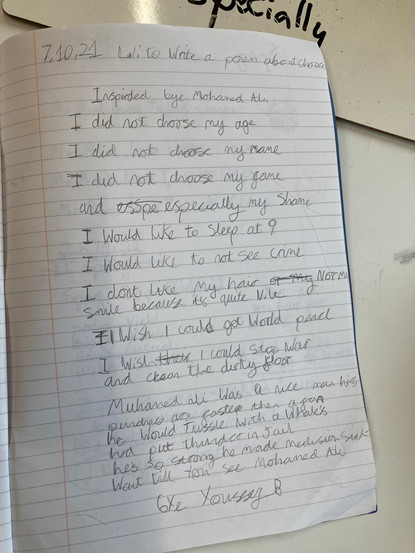 specially
7.10.21 L.I: to Write a poem about choose
Inspirded bye Mohamed Ali
I did not choose my age
I did not choose my name
I did not choose my game
and especially my Shame
I Would like to Sleep at 9
I Would like to not see crime
I dont like My hair or my NORML
smile because its quite Vile
I Wish I could get World peacl
I Wish I could Stop War
and clean the dirty floor
Muhamed ali Was a nice man his
punches are faster then a
he Would Tussle With a Whales
had put thunder in Jail
hes so strong he made medusin Sick
Wait till You see Mohamed Ali
6Xe Yousef B